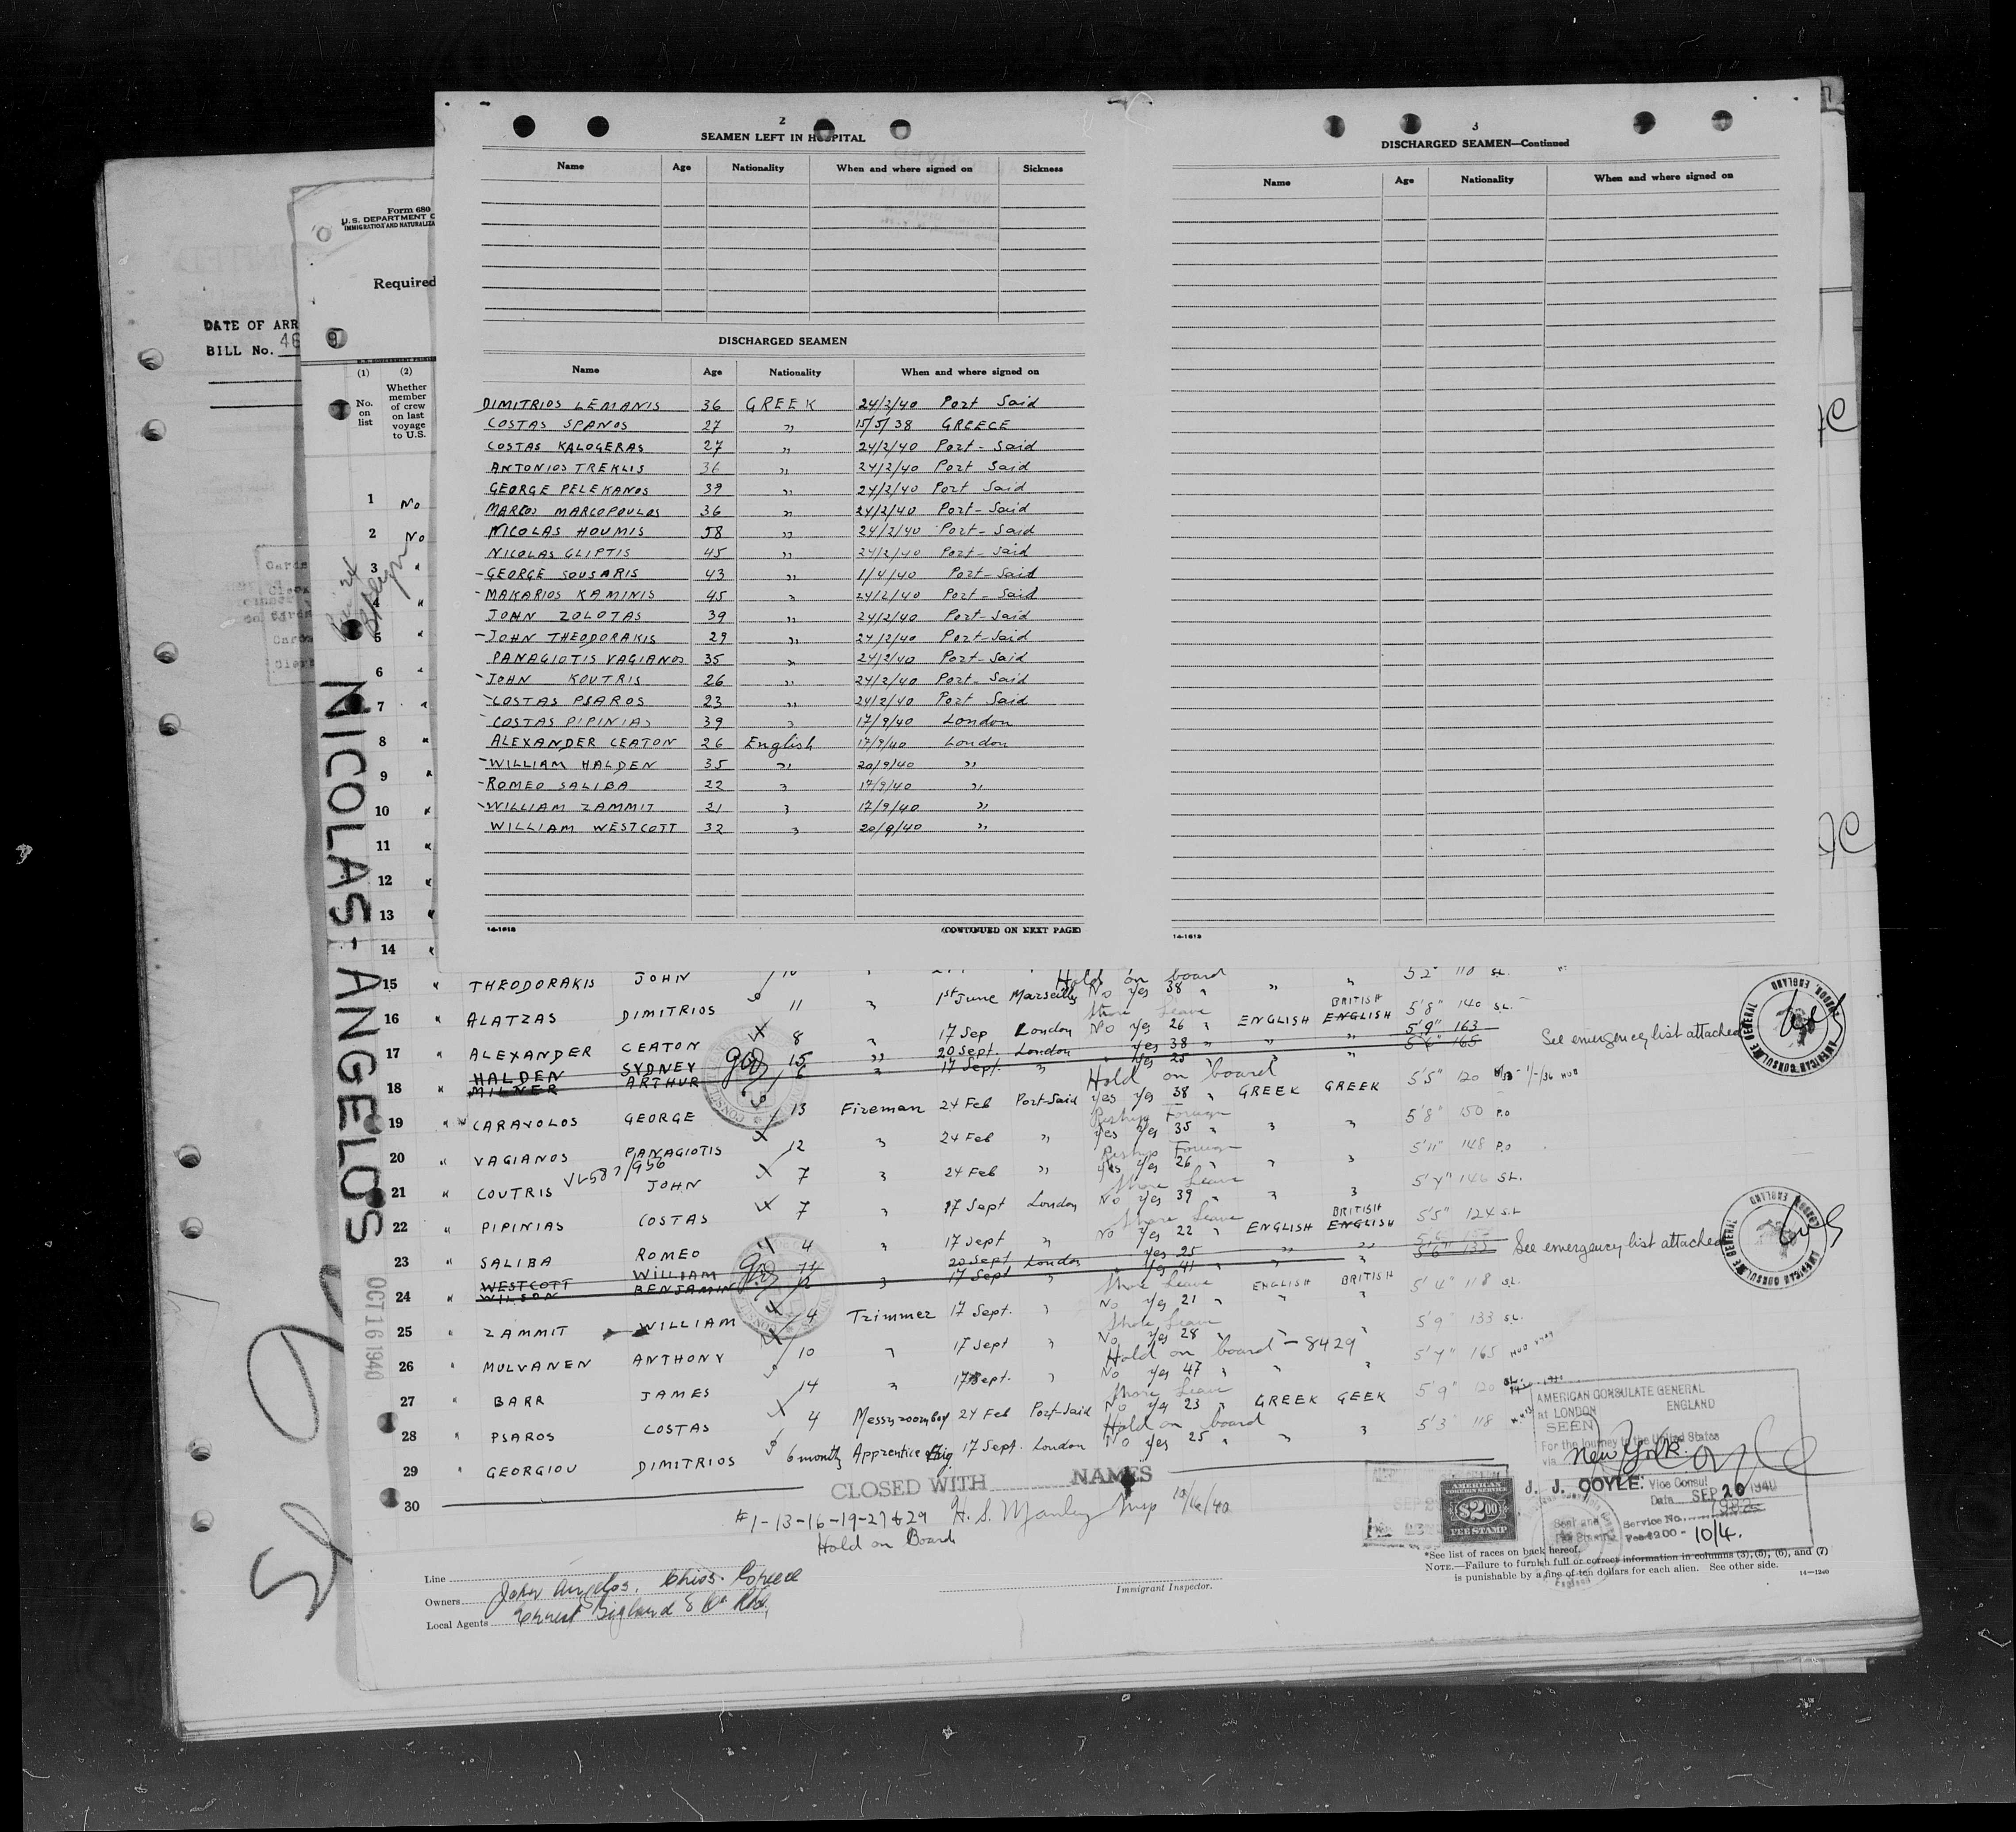 2
SEAMEN LEFT IN HOSPITAL
Name Age Nationality When and where signed on Sickness
DISCHARGED SEAMEN
Name Age Nationality When and where signed on
DIMITRIOS LEMANIS 36 GREEK 24/2/40 Port Said
COSTAS SPANOS 27 " 15/5/38 GREECE
COSTAS KALOGERAS 27 " 24/2/40 Port-Said
ANTONIOS TREKLIS 36 " 24/2/40 Port Said
GEORGE PELEKANOS 39 " 24/2/40 Port Said
MARCOS MARCOPOULOS 36 " 24/2/40 Port-Said
NICOLAS HOUMIS 58 " 24/2/40 Port-Said
NICOLAS GLIPTIS 45 " 24/2/40 Port-Said
-GEORGE SOUSARIS 43 " 1/4/40 Port-Said
-MAKARIOS KAMINIS 45 " 24/2/40 Port-Said
JOHN ZOLOTAS 39 " 24/2/40 Port-Said
-JOHN THEODORAKIS 29 " 24/2/40 Port-Said
PANAGIOTIS VAGIANOS 35 " 24/2/40 Port-Said
-JOHN KOUTRIS 26 " 24/2/40 Port-Said
-COSTAS PSAROS 23 " 24/2/40 Port Said
COSTAS PIPINIAS 39 " 17/9/40 London
ALEXANDER CEATON 26 English 17/9/40 London
-WILLIAM HALDEN 35 " 20/9/40 "
-ROMEO SALIBA 22 " 17/9/40 "
-WILLIAM ZAMMIT 21 " 17/9/40 "
WILLIAM WESTCOTT 32 " 20/9/40 "
14-1618
(CONTINUED ON NEXT PAGE)
3
DISCHARGED SEAMEN—Continued
Name Age Nationality When and where signed on
14-1618
DATE OF ARR
BILL No. 46
Form 680
U.S. DEPARTMENT O
IMMIGRATION AND NATURALIZA
Required
(1) (2)
No. on list
Whether member of crew on last voyage to U.S.
1 No
2 No
3 "
4 "
5 "
6 "
7 "
8 "
9 "
10 "
11 "
12 "
13 "
14 "
NICOLAS-ANGELOS
OCT 16 1940
15 " THEODORAKIS JOHN
Hold on board " " 5'2" 110 SL.
16 " ALATZAS DIMITRIOS 11 " 1st June Marseilles No Yes 38 " BRITISH 5'8" 140 SL.
Shore Leave
17 " ALEXANDER CEATON 8 " 17 Sep London No Yes 26 " ENGLISH ENGLISH 5'9" 163
HALDEN SYDNEY 15 " 20 Sept. London Yes 38 " " " 5'6" 165 See emergency list attached
18 " MILNER ARTHUR 6 " 17 Sept. " Yes 25 " "
Hold on board
19 " CARAVOLOS GEORGE 13 Fireman 24 Feb Port-Said Yes Yes 38 " GREEK GREEK 5'5" 120
Reship Foreign
20 " VAGIANOS PANAGIOTIS 12 " 24 Feb " Yes Yes 35 " " " 5'8" 150 P.O
Reship Foreign
21 " COUTRIS JOHN 7 " 24 Feb " Yes Yes 26 " " " 5'11" 148 P.O
Shore Leave
22 " PIPINIAS COSTAS 7 " 17 Sept London No Yes 39 " " " 5'4" 146 SL.
Shore Leave BRITISH
23 " SALIBA ROMEO 4 " 17 Sept " No Yes 22 " ENGLISH ENGLISH 5'5" 124 S.L
WESTCOTT WILLIAM 11 20 Sept London Yes 25 " " 5'6" 135 See emergency list attached
24 " WILSON BENJAMIN 12 " 17 Sept " Yes 41 " "
Shore Leave
25 " ZAMMIT WILLIAM 4 Trimmer 17 Sept. " No Yes 21 " ENGLISH BRITISH 5'4" 118 SL.
Shore Leave
26 " MULVANEN ANTHONY 10 " 17 Sept " No Yes 28 " " 5'9" 133 SL.
Hold on board - 8429
27 " BARR JAMES 14 " 17 Sept. " No Yes 47 " " " 5'7" 165
Shore Leave
28 " PSAROS COSTAS 4 Messroomboy 24 Feb Port-Said No Yes 23 " GREEK GEEK 5'9" 120 SL.
Hold on board
29 " GEORGIOU DIMITRIOS 6 months Apprentice 17 Sept. London No Yes 25 " " " 5'3" 118
30
CLOSED WITH NAMES
#1-13-16-19-27&29 H. S. Manley Insp 10/16/40
Hold on Board
AMERICAN CONSULATE GENERAL
AT LONDON ENGLAND
SEEN
For the journey to the United States
via New York.
J. J. COYLE: Vice Consul
Date SEP 20 1940
Service No.
Fee $2.00 - 10/4.
AMERICAN FOREIGN SERVICE
$2.00
FEE STAMP
AMERICAN CONSULATE GENERAL LONDON, ENGLAND
Line
Owners John Angelos. Chios. Greece
Local Agents Ernest Bigland & Co. Ltd.
Immigrant Inspector.
*See list of races on back hereof.
NOTE.—Failure to furnish full or correct information in columns (3), (5), (6), and (7)
is punishable by a fine of ten dollars for each alien. See other side. 14-1240